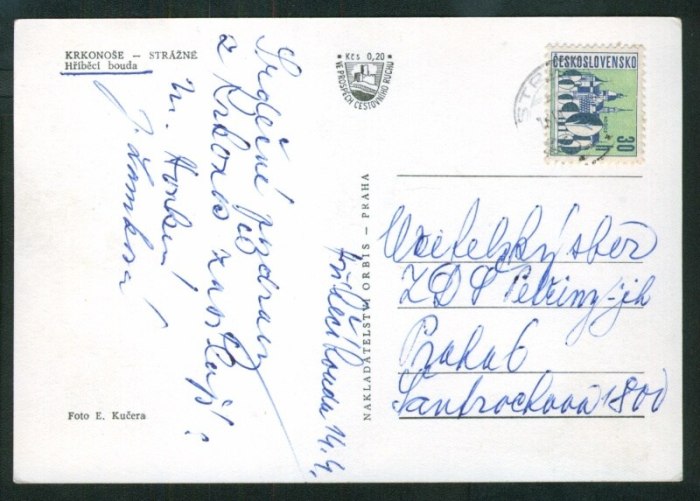 KRKONOŠE – STRÁŽNÉ
Hříběcí bouda
Kčs 0,20
VE PROSPĚCH CESTOVNÍHO RUCHU
ČESKOSLOVENSKO
30 h
Srdečné pozdravy
z Krkonoš zasílají:
M.
J.
Hříběcí bouda 14.4.
NAKLADATELSTVÍ ORBIS – PRAHA
Učitelský sbor
ZDŠ Petřiny-jih
Praha 6
1800
Foto E. Kučera